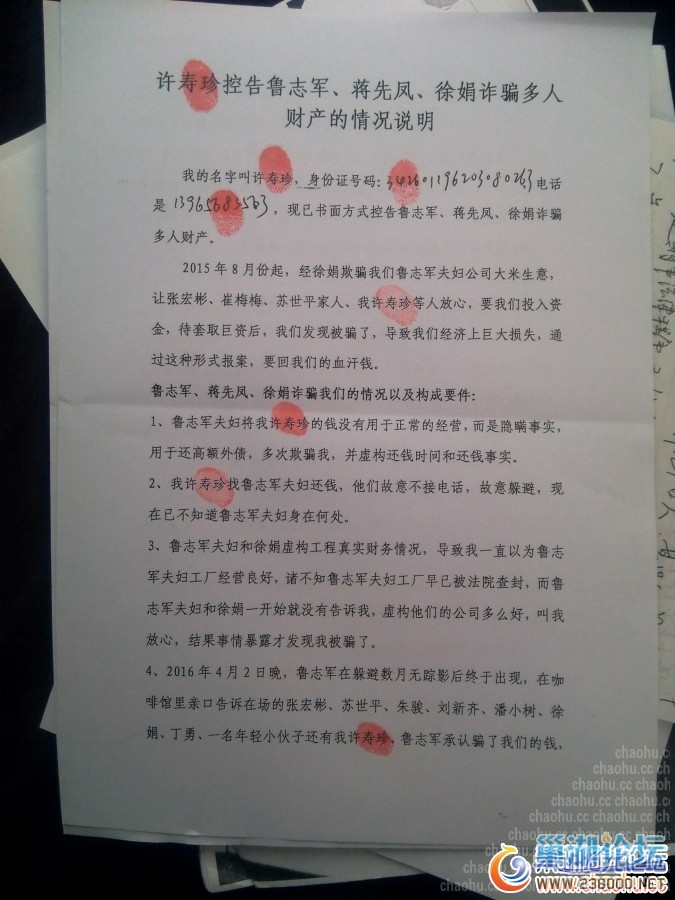 许寿珍控告鲁志军、蒋先凤、徐娟诈骗多人
财产的情况说明
我的名字叫许寿珍，身份证号码：342601196203080263电话
是13965683563，现已书面方式控告鲁志军、蒋先凤、徐娟诈骗
多人财产。
2015年8月份起，经徐娟欺骗我们鲁志军夫妇公司大米生意，
让张宏彬、崔梅梅、苏世平家人、我许寿珍等人放心，要我们投入资
金，待套取巨资后，我们发现被骗了，导致我们经济上巨大损失，通
过这种形式报案，要回我们的血汗钱。
鲁志军、蒋先凤、徐娟诈骗我们的情况以及构成要件：
1、鲁志军夫妇将我许寿珍的钱没有用于正常的经营，而是隐瞒事实，
用于还高额外债，多次欺骗我，并虚构还钱时间和还钱事实。
2、我许寿珍找鲁志军夫妇还钱，他们故意不接电话，故意躲避，现
在已不知道鲁志军夫妇身在何处。
3、鲁志军夫妇和徐娟虚构工程真实财务情况，导致我一直以为鲁志
军夫妇工厂经营良好，诸不知鲁志军夫妇工厂早已被法院查封，而鲁
志军夫妇和徐娟一开始就没有告诉我，虚构他们的公司多么好，叫我
放心，结果事情暴露才发现我被骗了。
4、2016年4月2日晚，鲁志军在躲避数月无踪影后终于出现，在咖
啡馆里亲口告诉在场的张宏彬、苏世平、朱骏、刘新齐、潘小树、徐
娟、丁勇、一名年轻小伙子还有我许寿珍，鲁志军承认骗了我们的钱，
chaohu.cc
巢湖论坛
www.238000.NET